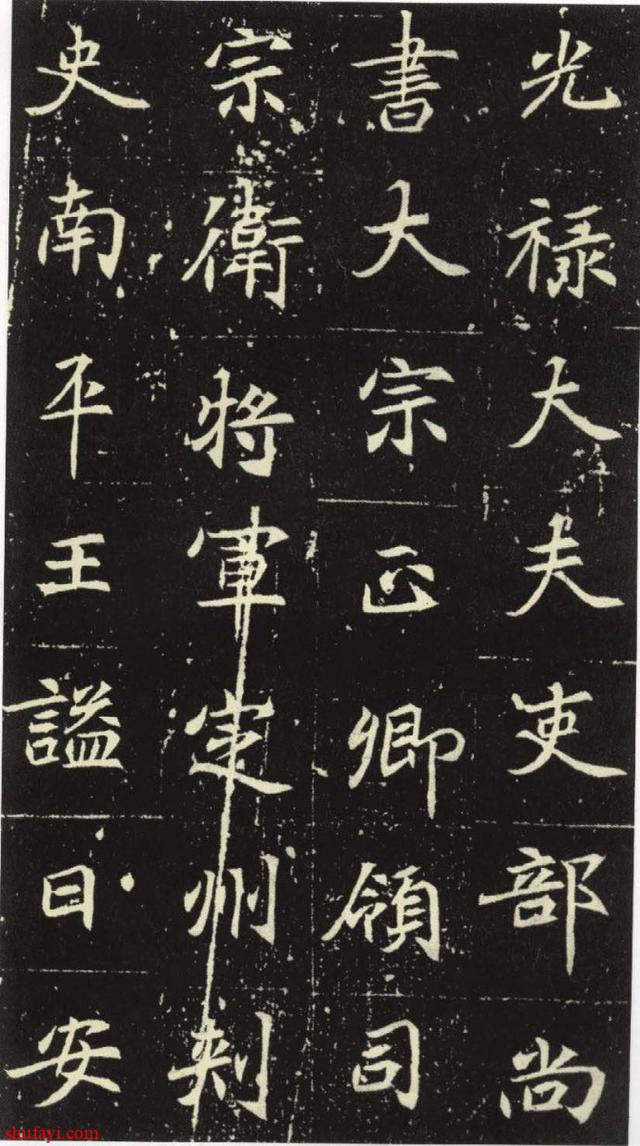 光祿大夫吏部尚
書大宗正卿領司
宗衛將軍定州刺
史南平王謚曰安
shufayi.com